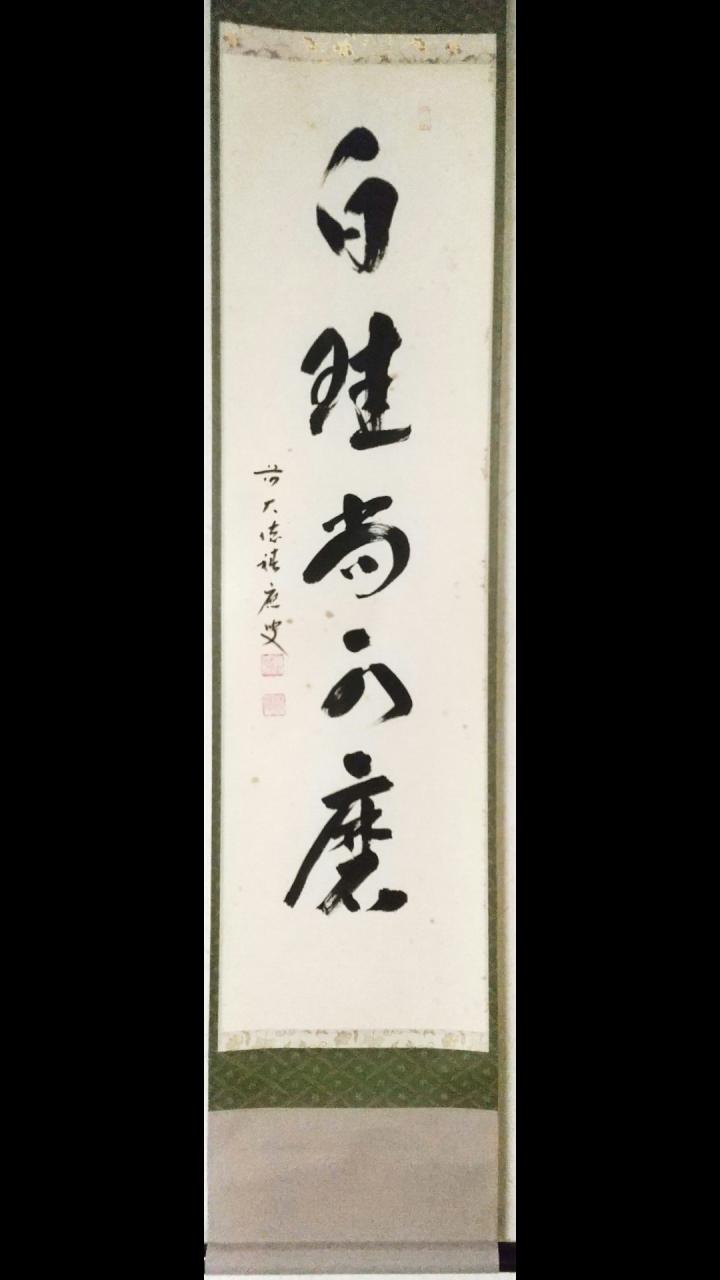 白珪尚可磨
前大徳積應叟